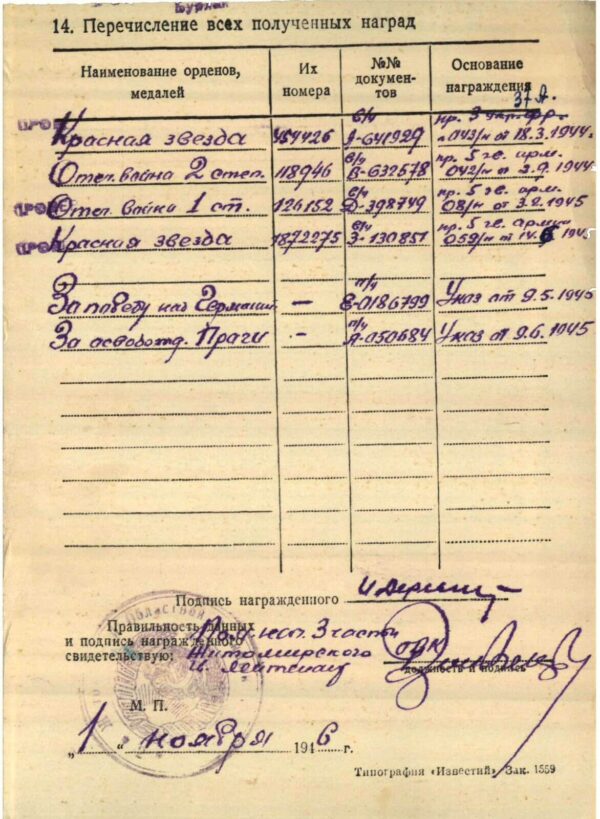 14. Перечисление всех полученных наград
Наименование орденов, медалей
Их номера
№№ документов
Основание награждения
37 А.
Красная звезда 454426 в/ч А-641929 пр. 3 укр. фр. 043/н от 18.3.1944
Отеч. война 2 степ. 118946 в/ч В-632578 пр. 5 гв. арм. 042/н от 3.9.1944
Отеч. война 1 ст. 126152 в/ч Д-398749 пр. 5 гв. арм. 08/н от 3.2.1945
Красная звезда 1872275 в/ч З-130851 пр. 5 гв. армии 059/н от 1945
За победу над Германией — п/ч Е-0186799 Указ от 9.5.1945
За освобожд. Праги - п/ч А-050684 Указ от 9.6.1945
Подпись награжденного
Правильность данных
и подпись награжденного
свидетельствую:
нач. 3 части
Житомирского
лейтенант
должность и подпись
М. П.
„1“ ноября 1946 г.
Типография «Известий» Зак. 1559